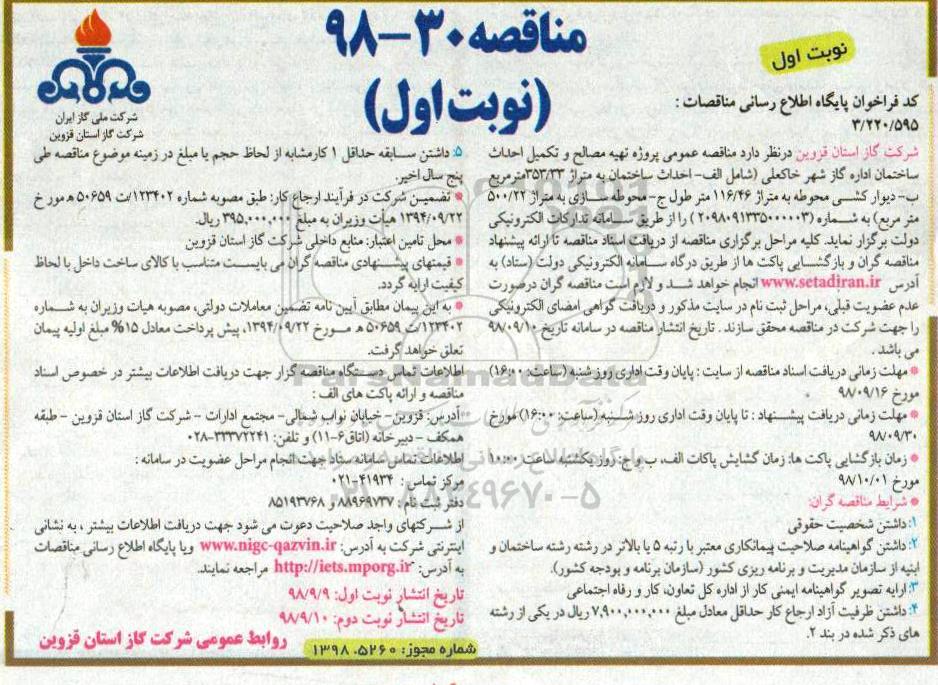 مناقصه ۳۰-۹۸
(نوبت اول)
نوبت اول
شرکت ملی گاز ایران
شرکت گاز استان قزوین
کد فراخوان پایگاه اطلاع رسانی مناقصات :
۳/۲۲۰/۵۹۵
شرکت گاز استان قزوین درنظر دارد مناقصه عمومی پروژه تهیه مصالح و تکمیل احداث
ساختمان اداره گاز شهر خاکعلی (شامل الف- احداث ساختمان به متراژ ۳۵۳/۳۳مترمربع
ب- دیوار کشی محوطه به متراژ ۱۱۶/۴۶ متر طول ج- محوطه سازی به متراژ ۵۰۰/۲۲
متر مربع) به شماره (۲۰۹۸۰۹۱۳۳۵۰۰۰۰۰۳) را از طریق سامانه تدارکات الکترونیکی
دولت برگزار نماید. کلیه مراحل برگزاری مناقصه از دریافت اسناد مناقصه تا ارائه پیشنهاد
مناقصه گران و بازگشایی پاکت ها از طریق درگاه سامانه الکترونیکی دولت (ستاد) به
آدرس www.setadiran.ir انجام خواهد شد و لازم است مناقصه گران درصورت
عدم عضویت قبلی، مراحل ثبت نام در سایت مذکور و دریافت گواهی امضای الکترونیکی
را جهت شرکت در مناقصه محقق سازند . تاریخ انتشار مناقصه در سامانه تاریخ ۹۸/۰۹/۱۰
می باشد .
* مهلت زمانی دریافت اسناد مناقصه از سایت : پایان وقت اداری روز شنبه (ساعت: ۱۶:۰۰)
مورخ ۹۸/۰۹/۱۶
* مهلت زمانی دریافت پیشنهاد : تا پایان وقت اداری روز شنبه (ساعت: ۱۶:۰۰) مورخ
۹۸/۰۹/۳۰
* زمان بازگشایی پاکت ها: زمان گشایش پاکات الف، ب و ج: روز یکشنبه ساعت: ۱۰:۰۰
مورخ ۹۸/۱۰/۰۱
* شرایط مناقصه گران:
۱: داشتن شخصیت حقوقی
۲: داشتن گواهینامه صلاحیت پیمانکاری معتبر با رتبه ۵ یا بالاتر در رشته رشته ساختمان و
ابنیه از سازمان مدیریت و برنامه ریزی کشور (سازمان برنامه و بودجه کشور).
۳: ارایه تصویر گواهینامه ایمنی کار از اداره کل تعاون، کار و رفاه اجتماعی
۴: داشتن ظرفیت آزاد ارجاع کار حداقل معادل مبلغ ۷,۹۰۰,۰۰۰,۰۰۰ ریال در یکی از رشته
های ذکر شده در بند ۲.
۵: داشتن سابقه حداقل ۱ کارمشابه از لحاظ حجم یا مبلغ در زمینه موضوع مناقصه طی
پنج سال اخیر.
* تضمین شرکت در فرآیند ارجاع کار: طبق مصوبه شماره ۱۲۳۴۰۲/ت ۵۰۶۵۹ ه مورخ
۱۳۹۴/۰۹/۲۲ هیأت وزیران به مبلغ ۳۹۵,۰۰۰,۰۰۰ ریال.
* محل تامین اعتبار: منابع داخلی شرکت گاز استان قزوین
* قیمتهای پیشنهادی مناقصه گران می بایست متناسب با کالای ساخت داخل با لحاظ
کیفیت ارایه گردد.
* به این پیمان مطابق آیین نامه تضمین معاملات دولتی، مصوبه هیات وزیران به شماره
۱۲۳۴۰۲/ت ۵۰۶۵۹ ه مورخ ۱۳۹۴/۰۹/۲۲، پیش پرداخت معادل ۱۵% مبلغ اولیه پیمان
تعلق خواهد گرفت.
اطلاعات تماس دستگاه مناقصه گزار جهت دریافت اطلاعات بیشتر در خصوص اسناد
مناقصه و ارائه پاکت های الف :
آدرس: قزوین- خیابان نواب شمالی- مجتمع ادارات – شرکت گاز استان قزوین – طبقه
همکف – دبیرخانه (اتاق۶-۱۱) و تلفن: ۳۳۳۷۲۲۴۱-۰۲۸
اطلاعات تماس سامانه ستاد جهت انجام مراحل عضویت در سامانه :
مرکز تماس : ۴۱۹۳۴-۰۲۱
دفتر ثبت نام: ۸۸۹۶۹۷۳۷ و ۸۵۱۹۳۷۶۸
از شرکتهای واجد صلاحیت دعوت می شود جهت دریافت اطلاعات بیشتر ، به نشانی
اینترنتی شرکت به آدرس: www.nigc-qazvin.ir ویا پایگاه اطلاع رسانی مناقصات
به آدرس: http://iets.mporg.ir مراجعه نمایند.
تاریخ انتشار نوبت اول: ۹۸/۹/۹
تاریخ انتشار نوبت دوم: ۹۸/۹/۱۰
شماره مجوز: ۱۳۹۸.۵۲۶۰
روابط عمومی شرکت گاز استان قزوین
ParsNamadData